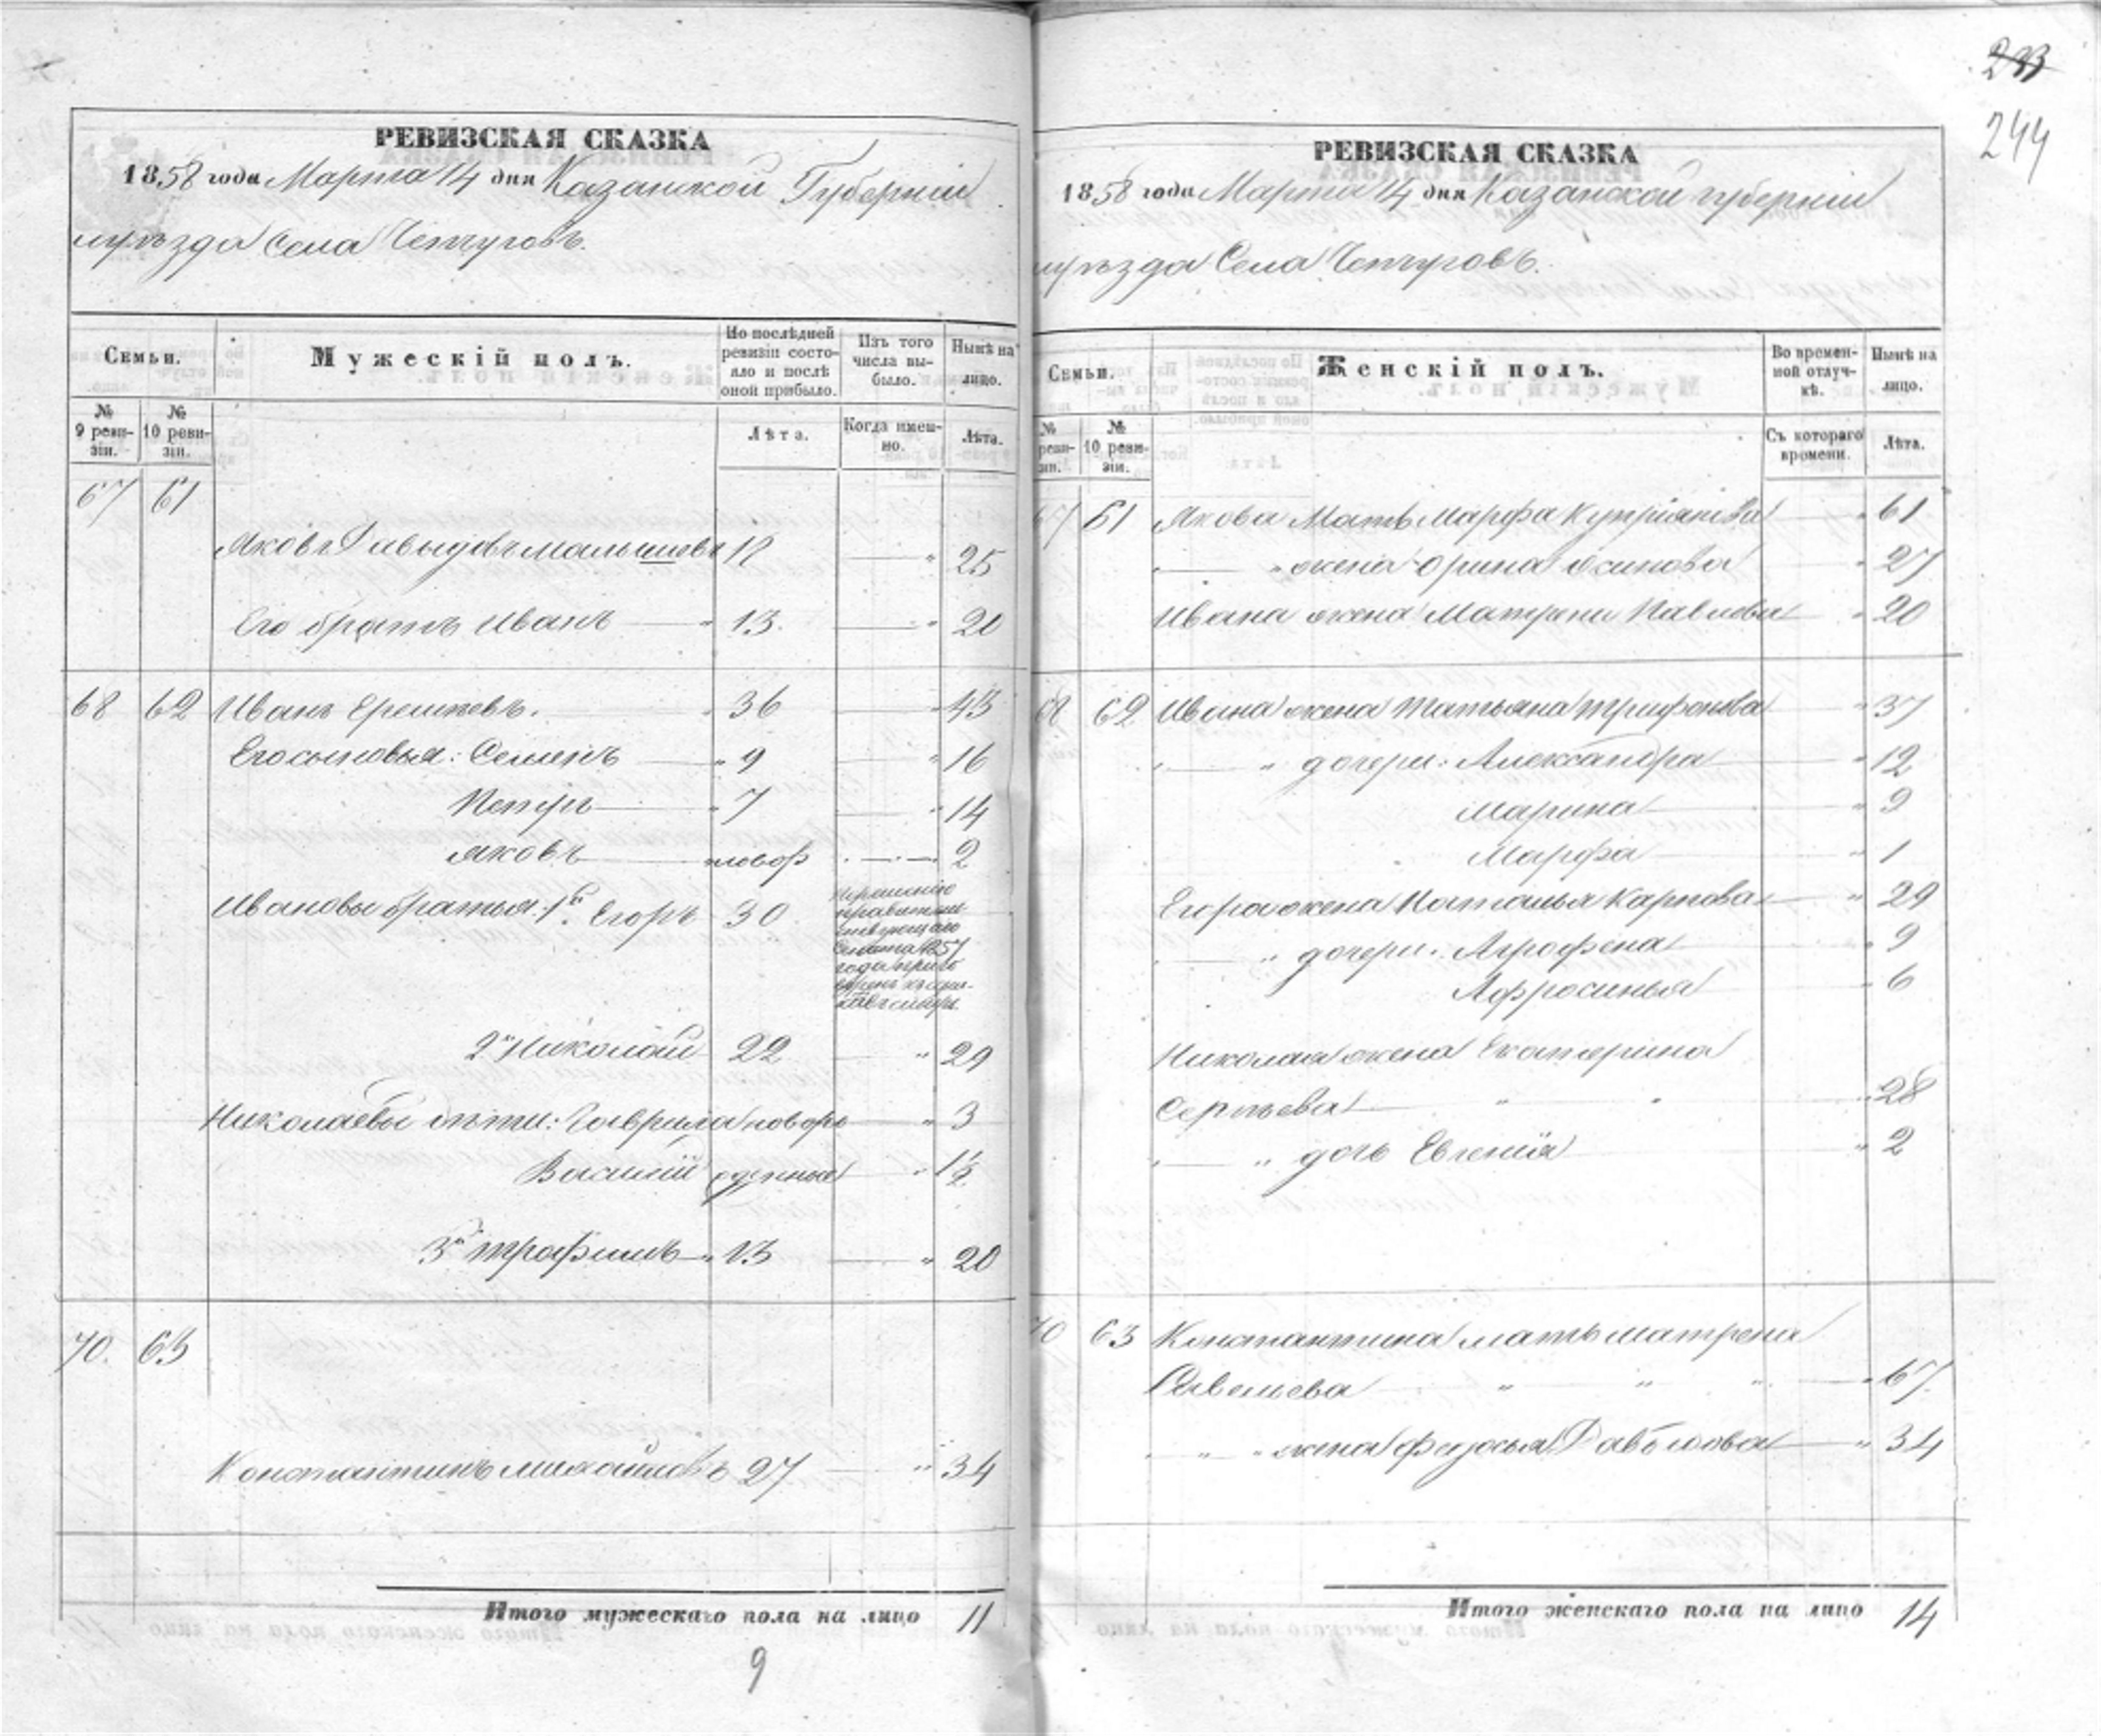 233
244
РЕВИЗСКАЯ СКАЗКА
1858 года Марта 14 дня Казанской Губернии
уѣзда Села
Семьи. Мужескій полъ. По послѣдней ревизіи состояло и послѣ оной прибыло. Изъ того числа выбыло. Нынѣ на лицо.
№ 9 ревизіи. № 10 ревизіи. Лѣта. Когда именно. Лѣта.
67 61
Яковъ Давыдовъ Малышевъ 18 25
Его братъ Иванъ 13. 20
68 62 Иванъ 36 43
Его сыновья: Семенъ 9 16
Петръ 7 14
Яковъ новор 2
Ивановы братья: 1й Егоръ 30
По решенію
правитель
ствующаго
Сената 1857
года
2й Николай 22 29
Николаевы дѣти: Гаврила новоро 3
Василій жденные 1½
3й Трафимъ 13 20
70. 63
Константинъ Михайловъ 27 34
Итого мужескаго пола на лицо 11
9
РЕВИЗСКАЯ СКАЗКА
1858 года Марта 14 дня Казанской губерніи
уѣзда Села
Семьи. Женскій полъ. Во временной отлучкѣ. Нынѣ на лицо.
№ реви- зіи. № 10 ревизіи. Съ котораго времени. Лѣта.
67 61 Якова Мать Марфа Купріянова 61
" жена Орина Осипова 27
Ивана жена Матрена Павлова 20
68 62 Ивана жена Татьяна Трифонова 37
" дочери: Александра 12
Марина 9
Марфа 1
Егора жена Наталья Карпова 29
" дочери: Агрофена 9
Афросинья 6
Николая жена Екатерина
Сергѣева " " 28
" дочь Евгенія 2
70 63 Константина мать Матрена
Савельева " " " 67.
" " жена Федосья Давыдова 34
Итого женскаго пола на лицо 14